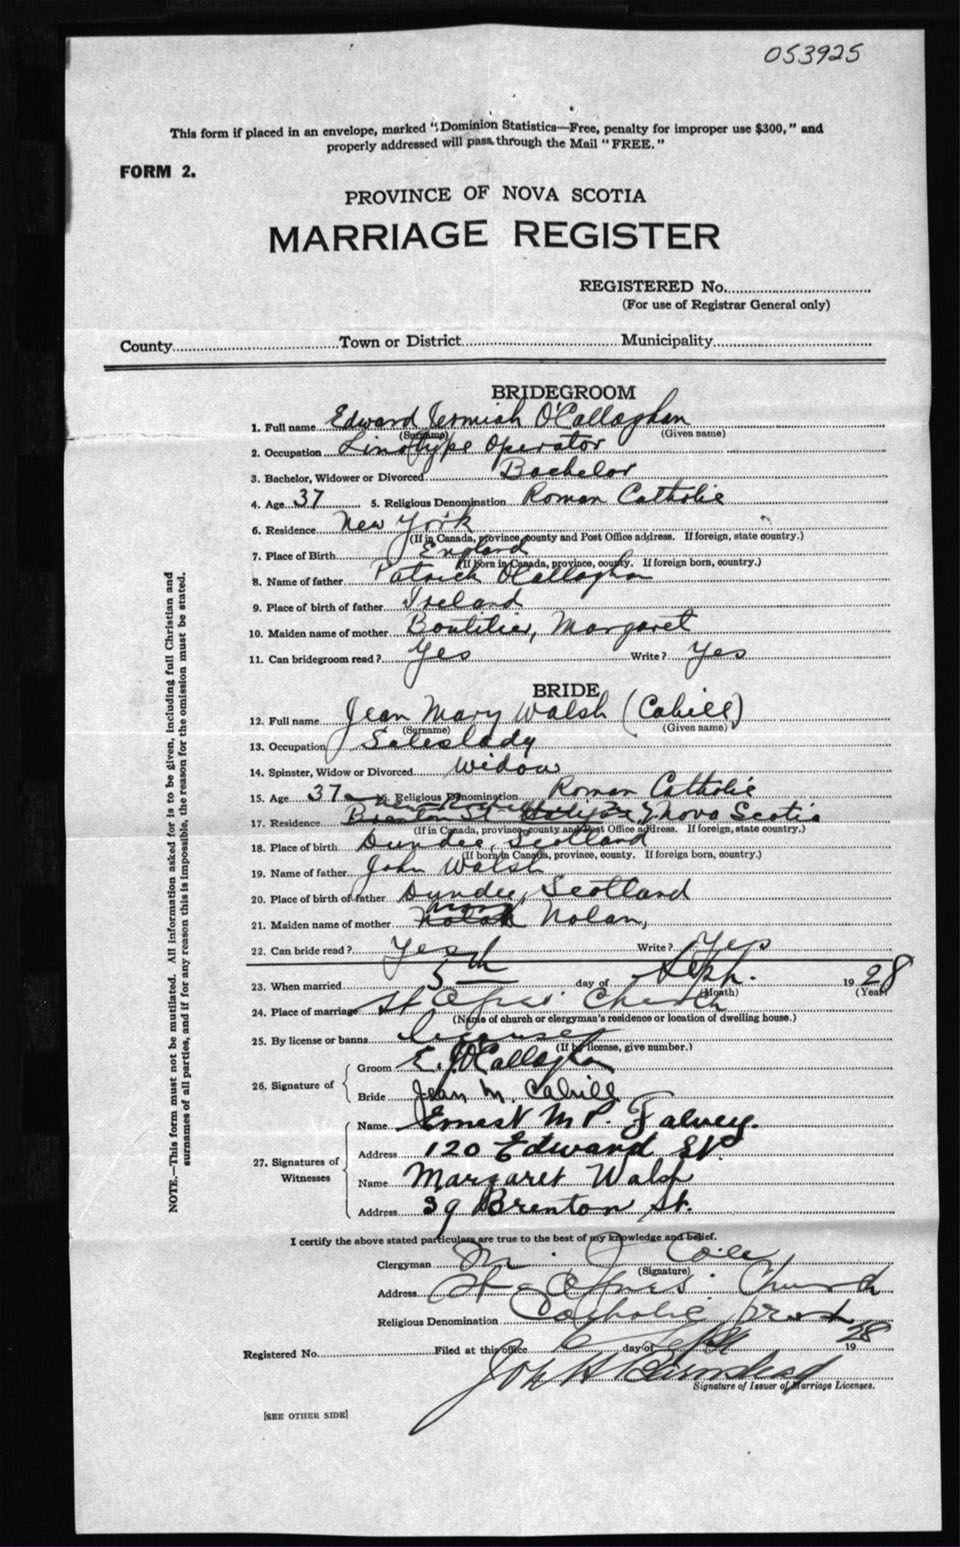 053925
This form if placed in an envelope, marked "Dominion Statistics—Free, penalty for improper use $300," and
properly addressed will pass through the Mail "FREE."
FORM 2.
PROVINCE OF NOVA SCOTIA
MARRIAGE REGISTER
REGISTERED No.
(For use of Registrar General only)
County Town or District Municipality
BRIDEGROOM
1. Full name Edward Jermiah O'Callaghan
(Surname) (Given name)
2. Occupation Linotype Operator
3. Bachelor, Widower or Divorced Bachelor
4. Age 37 5. Religious Denomination Roman Catholic
6. Residence New York
(If in Canada, province, county and Post Office address. If foreign, state country.)
7. Place of Birth England
(If born in Canada, province, county. If foreign born, country.)
8. Name of father Patrick O'Callaghan
9. Place of birth of father Ireland
10. Maiden name of mother Boutilier, Margaret
11. Can bridegroom read? Yes Write? Yes
BRIDE
12. Full name Jean Mary Walsh (Cahill)
(Surname) (Given name)
13. Occupation Saleslady
14. Spinster, Widow or Divorced Widow
15. Age 37 16. Religious Denomination Roman Catholic
17. Residence Brenton St Halifax Nova Scotia
(If in Canada, province, county and Post Office address. If foreign, state country.)
18. Place of birth Dundee, Scotland
(If born in Canada, province, county. If foreign born, country.)
19. Name of father John Walsh
20. Place of birth of father Dundee, Scotland
21. Maiden name of mother Nolan,
22. Can bride read? Yes Write? Yes
23. When married 5th day of Sept. 1928
(Month) (Year)
24. Place of marriage St Agnes' Church
(Name of church or clergyman's residence or location of dwelling house.)
25. By license or banns license
(If by license, give number.)
26. Signature of
Groom E. J. O'Callaghan
Bride Jean M. Cahill
27. Signatures of Witnesses
Name Ernest M P. Falvey.
Address 120 Edward St.
Name Margaret Walsh
Address 39 Brenton St.
I certify the above stated particulars are true to the best of my knowledge and belief.
Clergyman
(Signature)
Address St Agnes' Church
Religious Denomination Catholic Priest
Registered No. Filed at this office 6 day of Sept 1928
Signature of Issuer of Marriage Licenses.
[SEE OTHER SIDE]
NOTE.—This form must not be mutilated. All information asked for is to be given, including full Christian and
surnames of all parties, and if for any reason this is impossible, the reason for the omission must be stated.